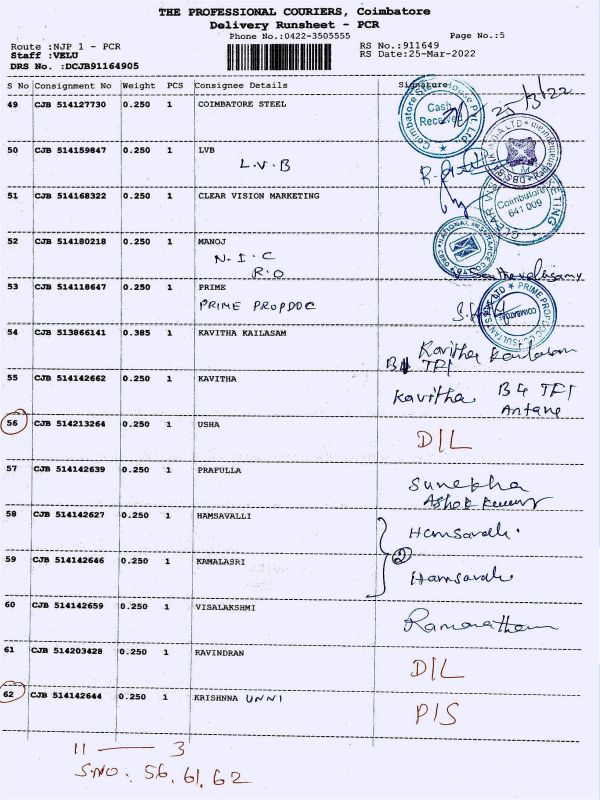 THE PROFESSIONAL COURIERS, Coimbatore
Delivery Runsheet - PCR
Phone No.:0422-3505555 Page No.:5
Route :NJP 1 - PCR RS No.:911649
Staff :VELU RS Date:25-Mar-2022
DRS No. :DCJB91164905
S No Consignment No Weight PCS Consignee Details Signature
49 CJB 514127730 0.250 1 COIMBATORE STEEL Cash Received 25/3/22
50 CJB 514159847 0.250 1 LVB
L.V.B
51 CJB 514168322 0.250 1 CLEAR VISION MARKETING Coimbatore 641 009
52 CJB 514180218 0.250 1 MANOJ
N.I.C
R.O
53 CJB 514118647 0.250 1 PRIME COIMBATORE
PRIME PROPDOC
54 CJB 513866141 0.385 1 KAVITHA KAILASAM Kavitha Kailasam
B4 TFI
55 CJB 514142662 0.250 1 KAVITHA Kavitha B4 TFI
56 CJB 514213264 0.250 1 USHA D/L
57 CJB 514142639 0.250 1 PRAFULLA
Ashok Kumar
58 CJB 514142627 0.250 1 HAMSAVALLI Hamsavalli
2
59 CJB 514142646 0.250 1 KAMALASRI Hamsavalli
60 CJB 514142659 0.250 1 VISALAKSHMI Ramanathan
61 CJB 514203428 0.250 1 RAVINDRAN D/L
62 CJB 514142644 0.250 1 KRISHNNA UNNI P/S
11 — 3
S.NO. 56, 61, 62